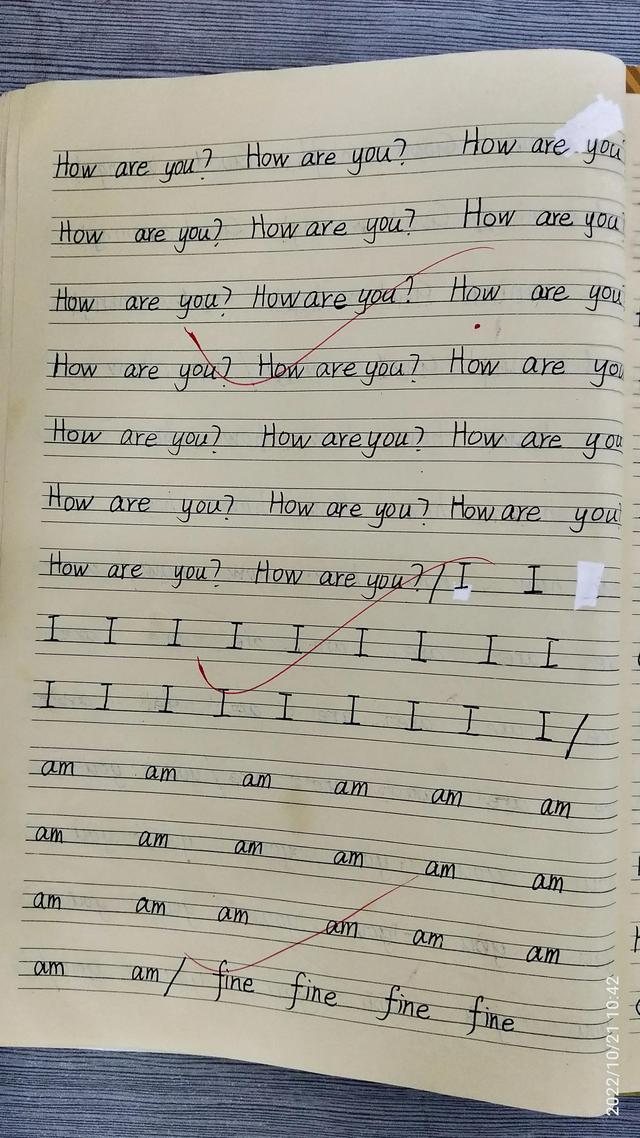 How are you? How are you? How are you
How are you? How are you? How are you
How are you? How are you? How are you
How are you? How are you? How are you
How are you? How are you? How are you
How are you? How are you? How are you
How are you? How are you? / I I
I I I I I I I I I
I I I I I I I I I /
am am am am am am
am am am am am am
am am am am am am
am am / fine fine fine fine
2022/10/21 10:42